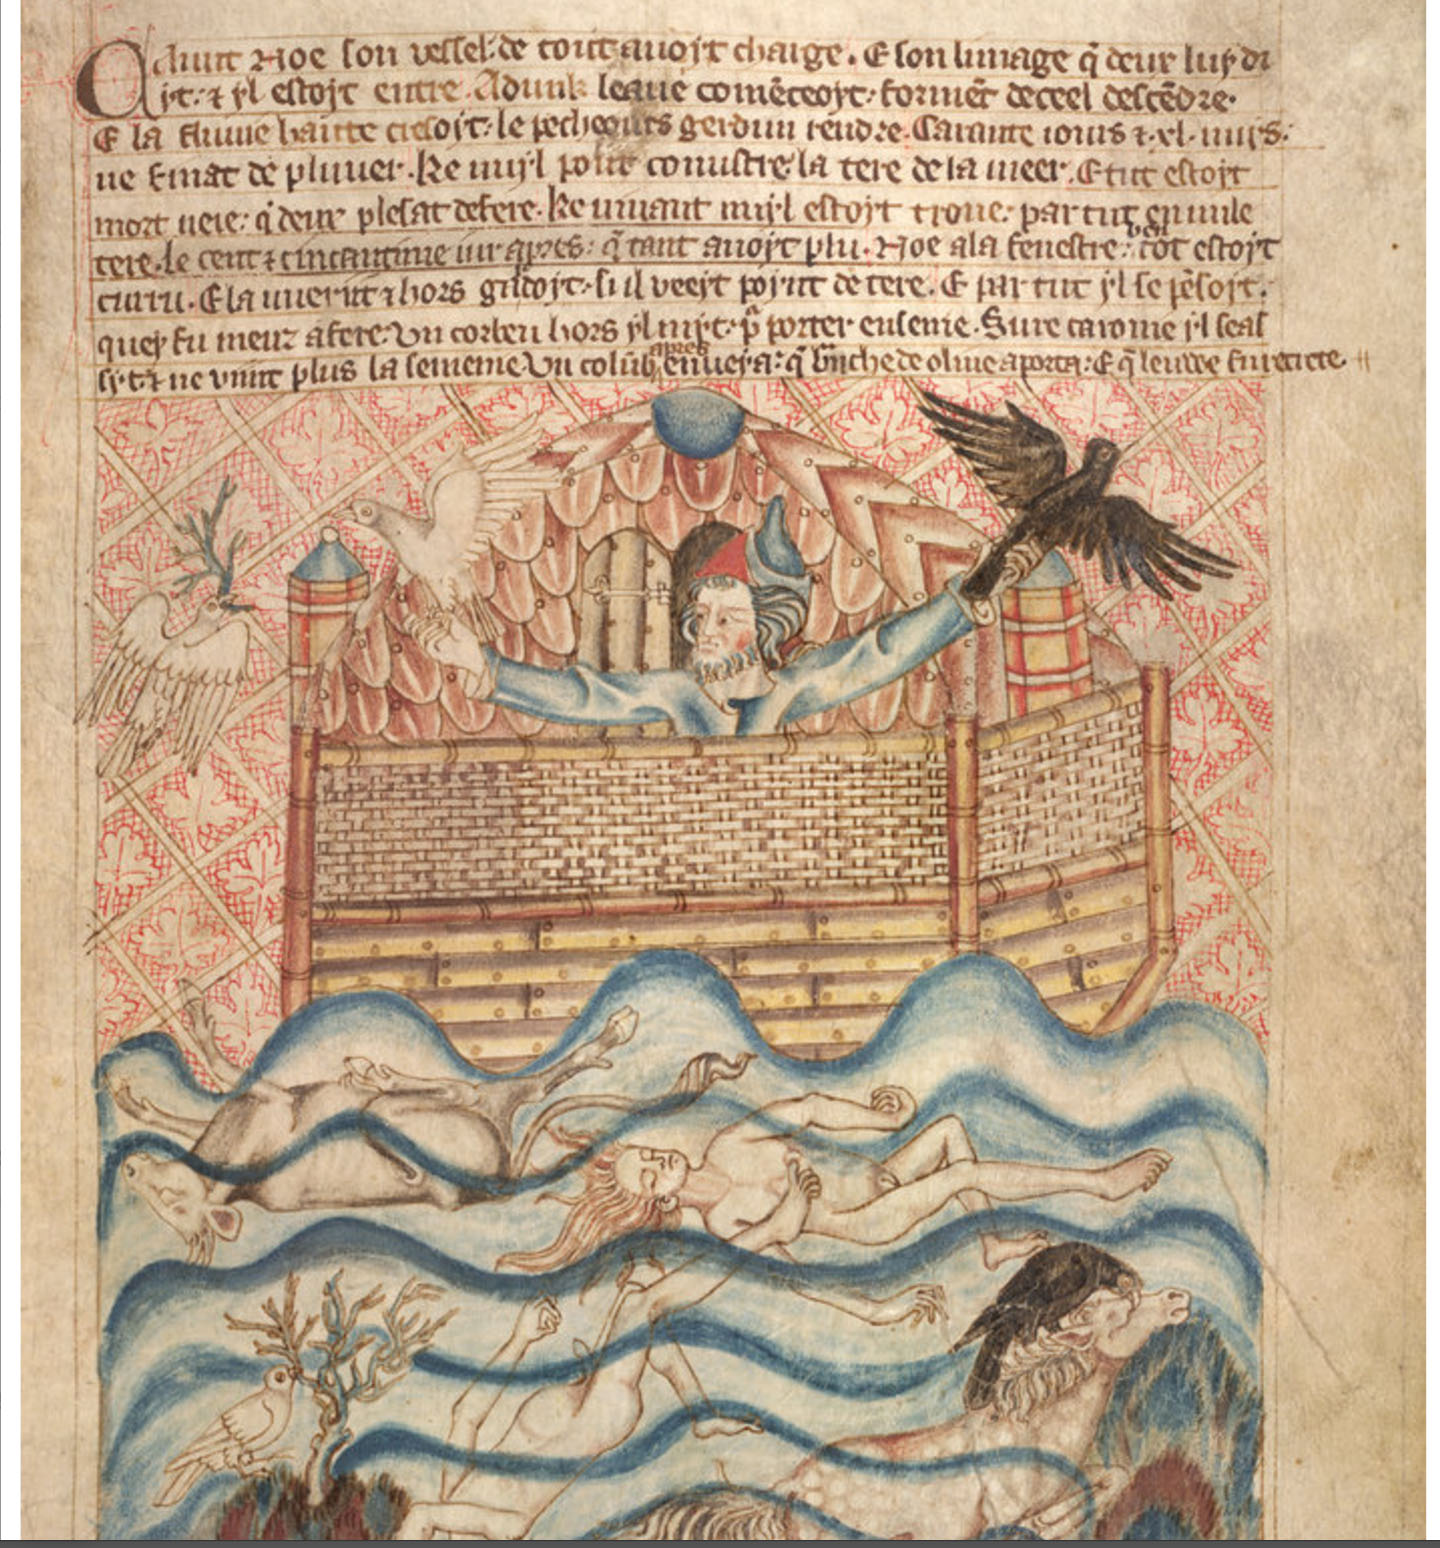 Adunt Noe son vessel: de tout auoit charge. E son linnage q̃ deux luy di
it: ⁊ yl estoit entre. Adunk leaue comẽceoyt: formẽt de ceel descẽdre.
E la fluuie hautte cresoit: le gerdun rendre. Carante iours ⁊ .xl. nuys.
ne finat de pluuer. Ke nuyl pout conustre: la tere de la meer. E tut estoit
mort ueie: q̃ deux plesat de fere. Ke uiuant nuyl estoyt troue: par tut en nule
tere. le cent ⁊ cincantime iur apres: q̃ tant auoit plu. Noe ala fenestre: tot estoyt
E la uuerit ⁊ hors gardoyt: si il veeyt poynt de tere. E par tut yl se pẽsoit.
quey fu meuz a fere. Vn corbeu hors yl myt: pͣ porter enseine. Sure caroine yl seas
syt: ⁊ ne vint plus la semeine. Vn colũb apres enueya: q̃ brũche de oliue aporta: E q̃ leuwe fu retrete.